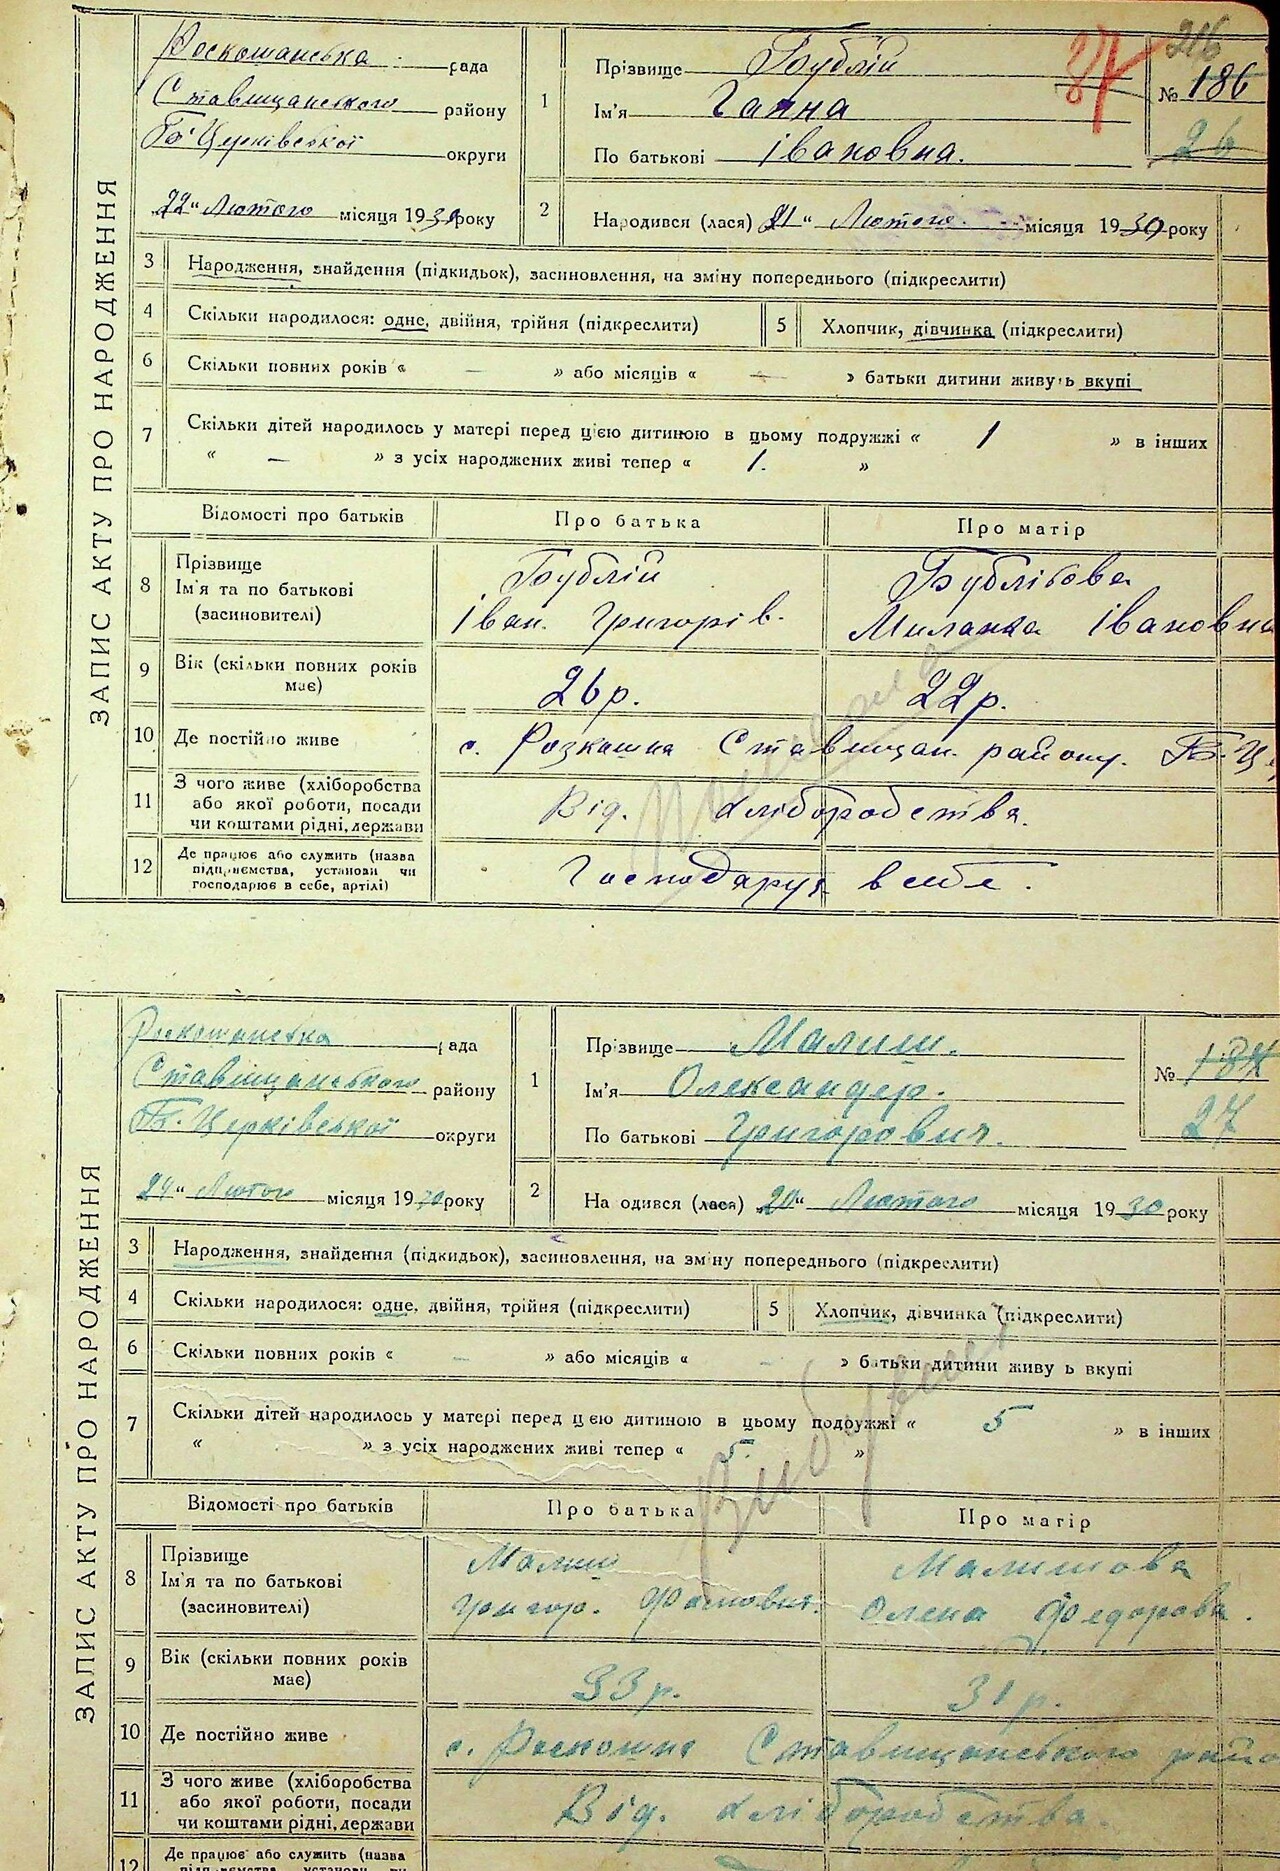 ЗАПИС АКТУ ПРО НАРОДЖЕННЯ
Роскошанська рада
Ставищанського району
Б. Церківської округи
22 „ Лютого місяця 1930 року
1
Прізвище Бублій
Ім'я Ганна
По батькові Івановна.
37
216
№ 186
26
2
Народився (лася) 21 „ Лютого місяця 1930 року
3 Народження, знайдення (підкидьок), засиновлення, на зміну попереднього (підкреслити)
4 Скільки народилося: одне, двійня, трійня (підкреслити) 5 Хлопчик, дівчинка (підкреслити)
6 Скільки повних років « — » або місяців « — » батьки дитини живуть вкупі
7 Скільки дітей народилось у матері перед цією дитиною в цьому подружжі « 1 » в інших
« — » з усіх народжених живі тепер « 1. »
Відомості про батьків Про батька Про матір
8 Прізвище
Ім'я та по батькові
(засиновителі)
Бублій
Іван. Григорів.
Бублікова
Миланка Івановна
9 Вік (скільки повних років має) 26 р. 22 р.
10 Де постійно живе с. Розкошна Ставищан. району. Б. Це
11 З чого живе (хліборобства
або якої роботи, посади
чи коштами рідні, держави
Від. хліборобства.
12 Де працює або служить (назва
підприємства, установи чи
господарює в себе, артілі)
Господарує в себе.
ЗАПИС АКТУ ПРО НАРОДЖЕННЯ
Роскошанська рада
Ставищанського району
Б. Церківської округи
24 „ Лютого місяця 1930 року
1
Прізвище Малиш.
Ім'я Олександер.
По батькові Григорович.
№ 187
27
2
Народився (лася) „ Лютого місяця 1930 року
3 Народження, знайдення (підкидьок), засиновлення, на зміну попереднього (підкреслити)
4 Скільки народилося: одне, двійня, трійня (підкреслити) 5 Хлопчик, дівчинка (підкреслити)
6 Скільки повних років « — » або місяців « - » батьки дитини живу ь вкупі
7 Скільки дітей народилось у матері перед цією дитиною в цьому подружжі « 5 » в інших
« » з усіх народжених живі тепер « 5. »
Відомості про батьків Про батька Про матір
8 Прізвище
Ім'я та по батькові
(засиновителі)
Малиш
Григор.
Малишова
Олена Федорова.
9 Вік (скільки повних років має) 33 р. 31 р.
10 Де постійно живе с. Роскошна Ставищанського райо
11 З чого живе (хліборобства
або якої роботи, посади
чи коштами рідні, держави
Від. хліборобства.
12 Де працює або служить (назва
підприємства, установи чи